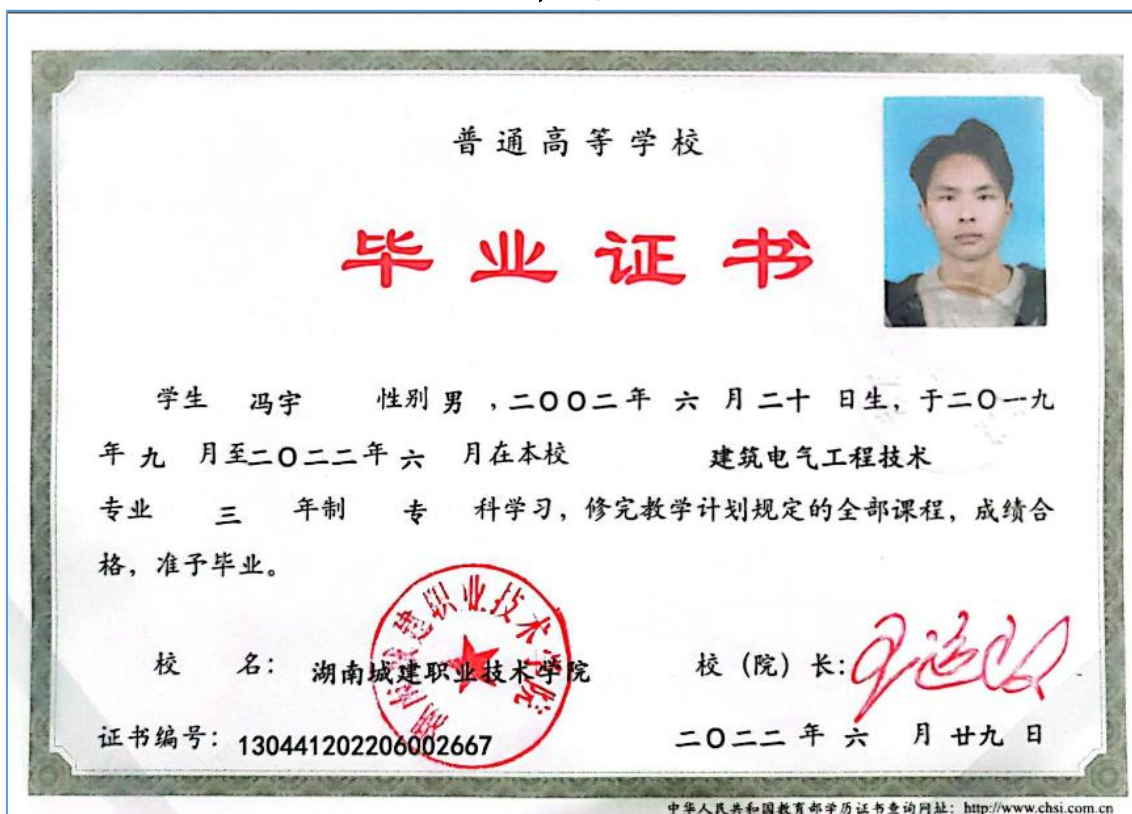 普通高等学校
毕业证书
学生 冯宇 性别 男 ,二〇〇二年 六 月 二十 日生,于二〇一九
年 九 月至二〇二二年 六 月在本校 建筑电气工程技术
专业 三 年制 专 科学习,修完教学计划规定的全部课程,成绩合
格,准予毕业。
湖南城建职业技术学院
校 名: 湖南城建职业技术学院 校(院)长:
证书编号: 130441202206002667 二〇二二 年 六 月 廿九 日
中华人民共和国教育部学历证书查询网址: http://www.chsi.com.cn